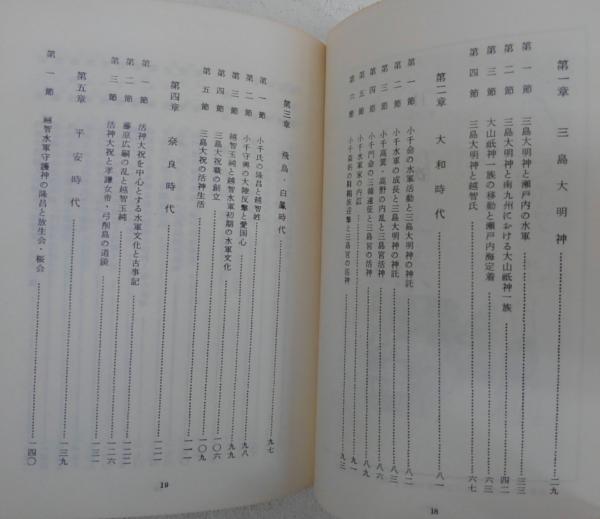 第一章　三島大明神……二九
第一節　三島大明神と瀬戸内の水軍……三三
第二節　三島大明神と南九州における大山祇神一族……四二
第三節　大山祇神一族の移動と瀬戸内海定着……六六
第四節　三島大明神と越智氏……六七
第二章　大和時代……八一
第一節　小千命の水軍活動と三島大明神の神託……八二
第二節　小千水軍の成長と三島大明神の神託
第三節　小千高黄・高野の内乱と三島宮活神
第四節　小千門命の三韓遠征と三島宮の活神……八九
第五節　小千水軍家の内訌
第六節　小千益躬の鞋鞨放逆撃と三島宮の活神……九三
18
第三章　飛鳥・白鳳時代……九七
第一節　小千氏の隆昌と越智姓
第二節　小千守興の大陸反撃と愛国心……九八
第三節　越智玉純と越智水軍初期の水軍文化……九九
第四節　三島大祝職の創立……一〇六
第五節　三島大祝の活神生活……一〇九
第四章　奈良時代……一二一
第一節　活神大祝を中心とする水軍文化と古事記……一二一
第二節　藤原広嗣の乱と越智玉純……一二二
第三節　活神大祝と孝謙女帝・弓削島の道鏡……一二六
第五章　平安時代……一三九
第一節　越智水軍守護神の隆昌と放生会・桜会……一四〇
19